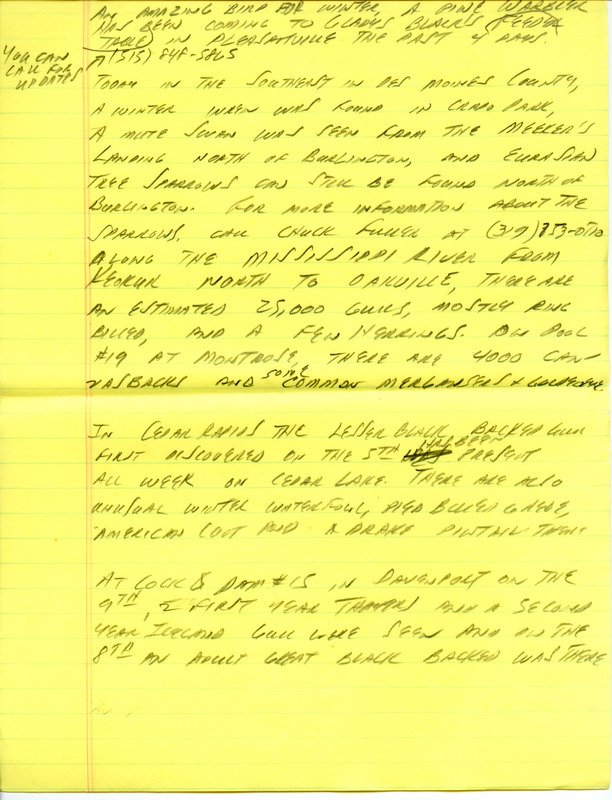 An amazing bird for winter, a pine warbler
has been coming to Gladys Black's (feeder
table) in Pleasantville the past 4 days.
(515) 848-5865
You can
call for
updates
Today in the southeast in Des Moines County,
a winter wren was found in Crapo Park,
a mute swan was seen from the Meeker's
Landing north of Burlington, and Eurasian
tree sparrows can still be found north of
Burlington. For more information about the
sparrows, call Chuck Fuller at (319) 753-0110
Along the Mississippi River from
Keokuk north to Oakville, there are
an estimated 25,000 gulls, mostly ring
billed, and a few herrings. On Pool
#19 at Montrose, there are 4000 can-
vasbacks and some common mergansers & goldeneye
In Cedar Rapids the lesser black backed gull
first discovered on the 5th has been present
all week on Cedar Lake. There are also
unusual winter waterfowl, pied billed grebe,
American coot and a drake pintail there
At Lock & Dam #15 in Davenport on the
9th, 2 first year Thayers and a second
year Iceland gull were seen and on the
8th an adult great black backed was there